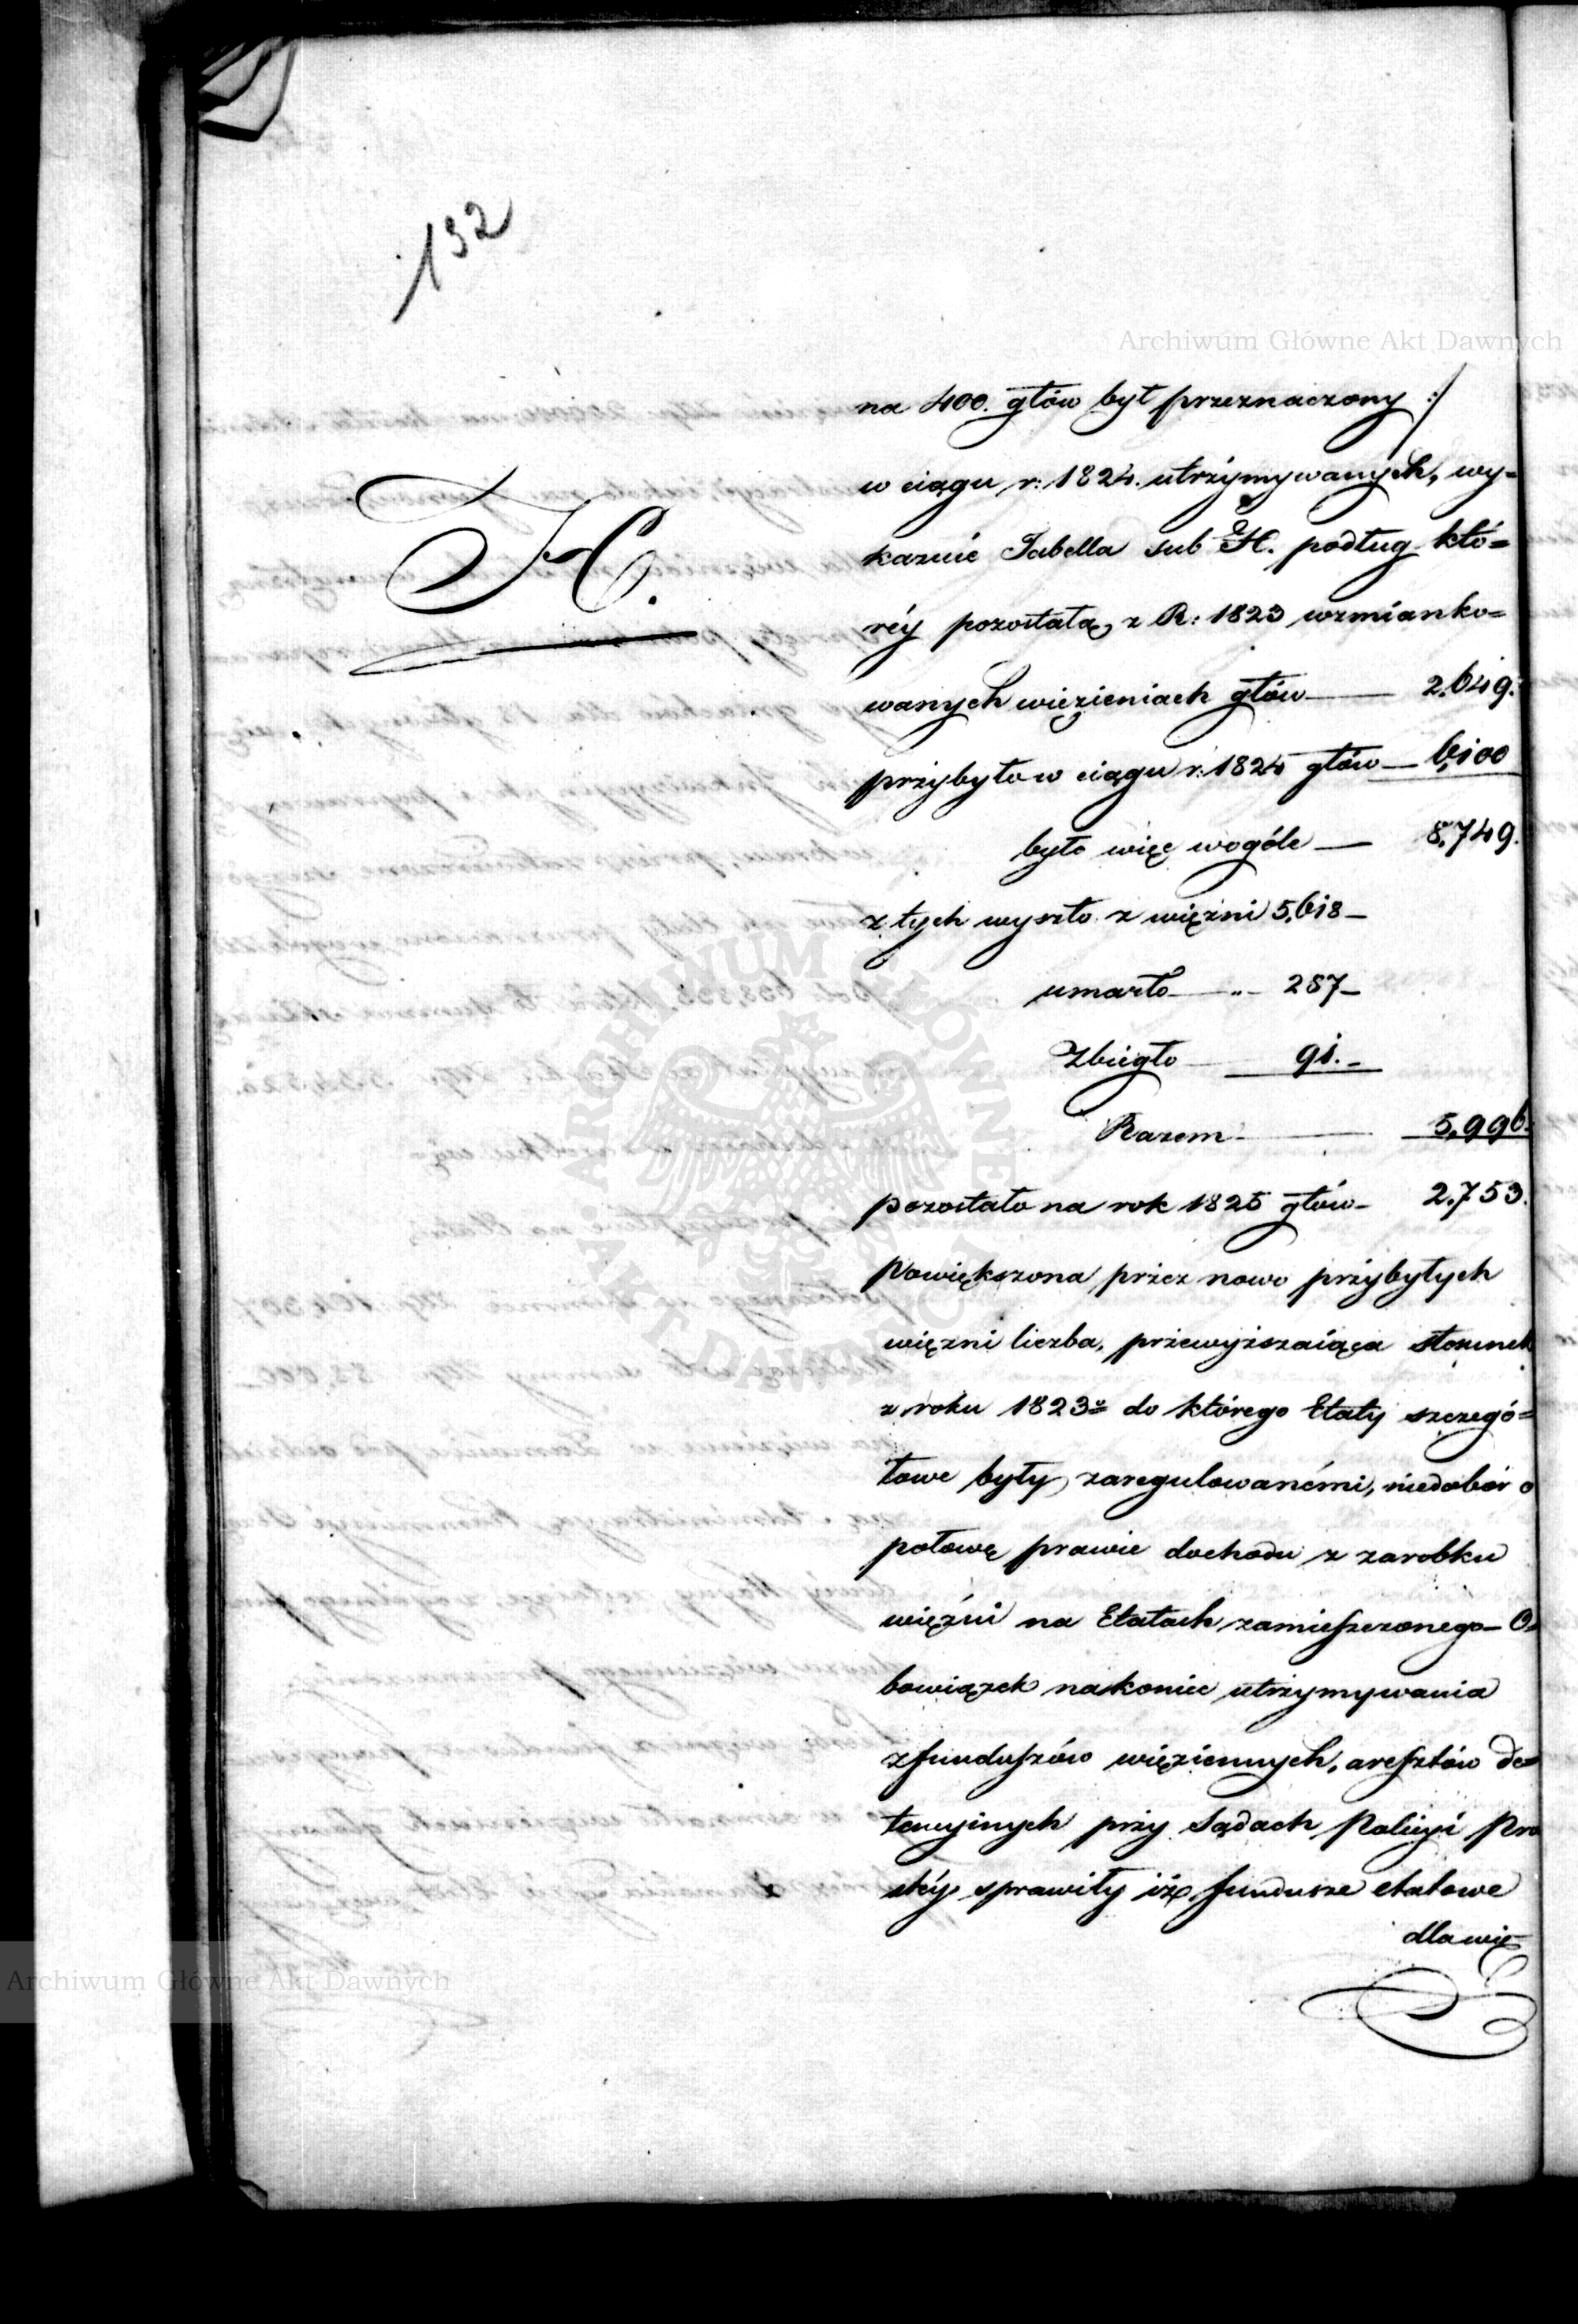 132
Archiwum Główne Akt Dawnych
na 400. głów był przeznaczony :/
w ciągu r: 1824. utrzymywanych, wy=
H.
kazuie Tabella sub H. podług któ=
réy pozostałą z R: 1823 wzmianko=
wanych więzieniach głów — 2.649.
przybyło w ciągu r: 1824 głów — 6,i00
było więc wogóle — 8,749.
z tych wyszło z więźni 5,6i8 —
umarło — „ — 287 —
Zbiegło — 9i. —
Razem — 5,996.
pozostało na rok 1825 głów — 2.753.
Powiększona przez nowo przybyłych
więzni liczba, przewyższaiąca stosunek
z roku 1823º do którego Etaty szczegó=
łowe były zaregulowanémi, niedobór o
połowę prawie dochodu z zarobku
więźni na Etatach zamieszczonego — O=
bowiązek nakoniec utrzymywania
z funduszów więziennych, aresztów de=
tencyinych przy Sądach Policyi Pro
stéy sprawiły iż fundusze etatowe
dla wię=
ARCHIWUM GŁÓWNE AKT DAWNYCH
Archiwum Główne Akt Dawnych